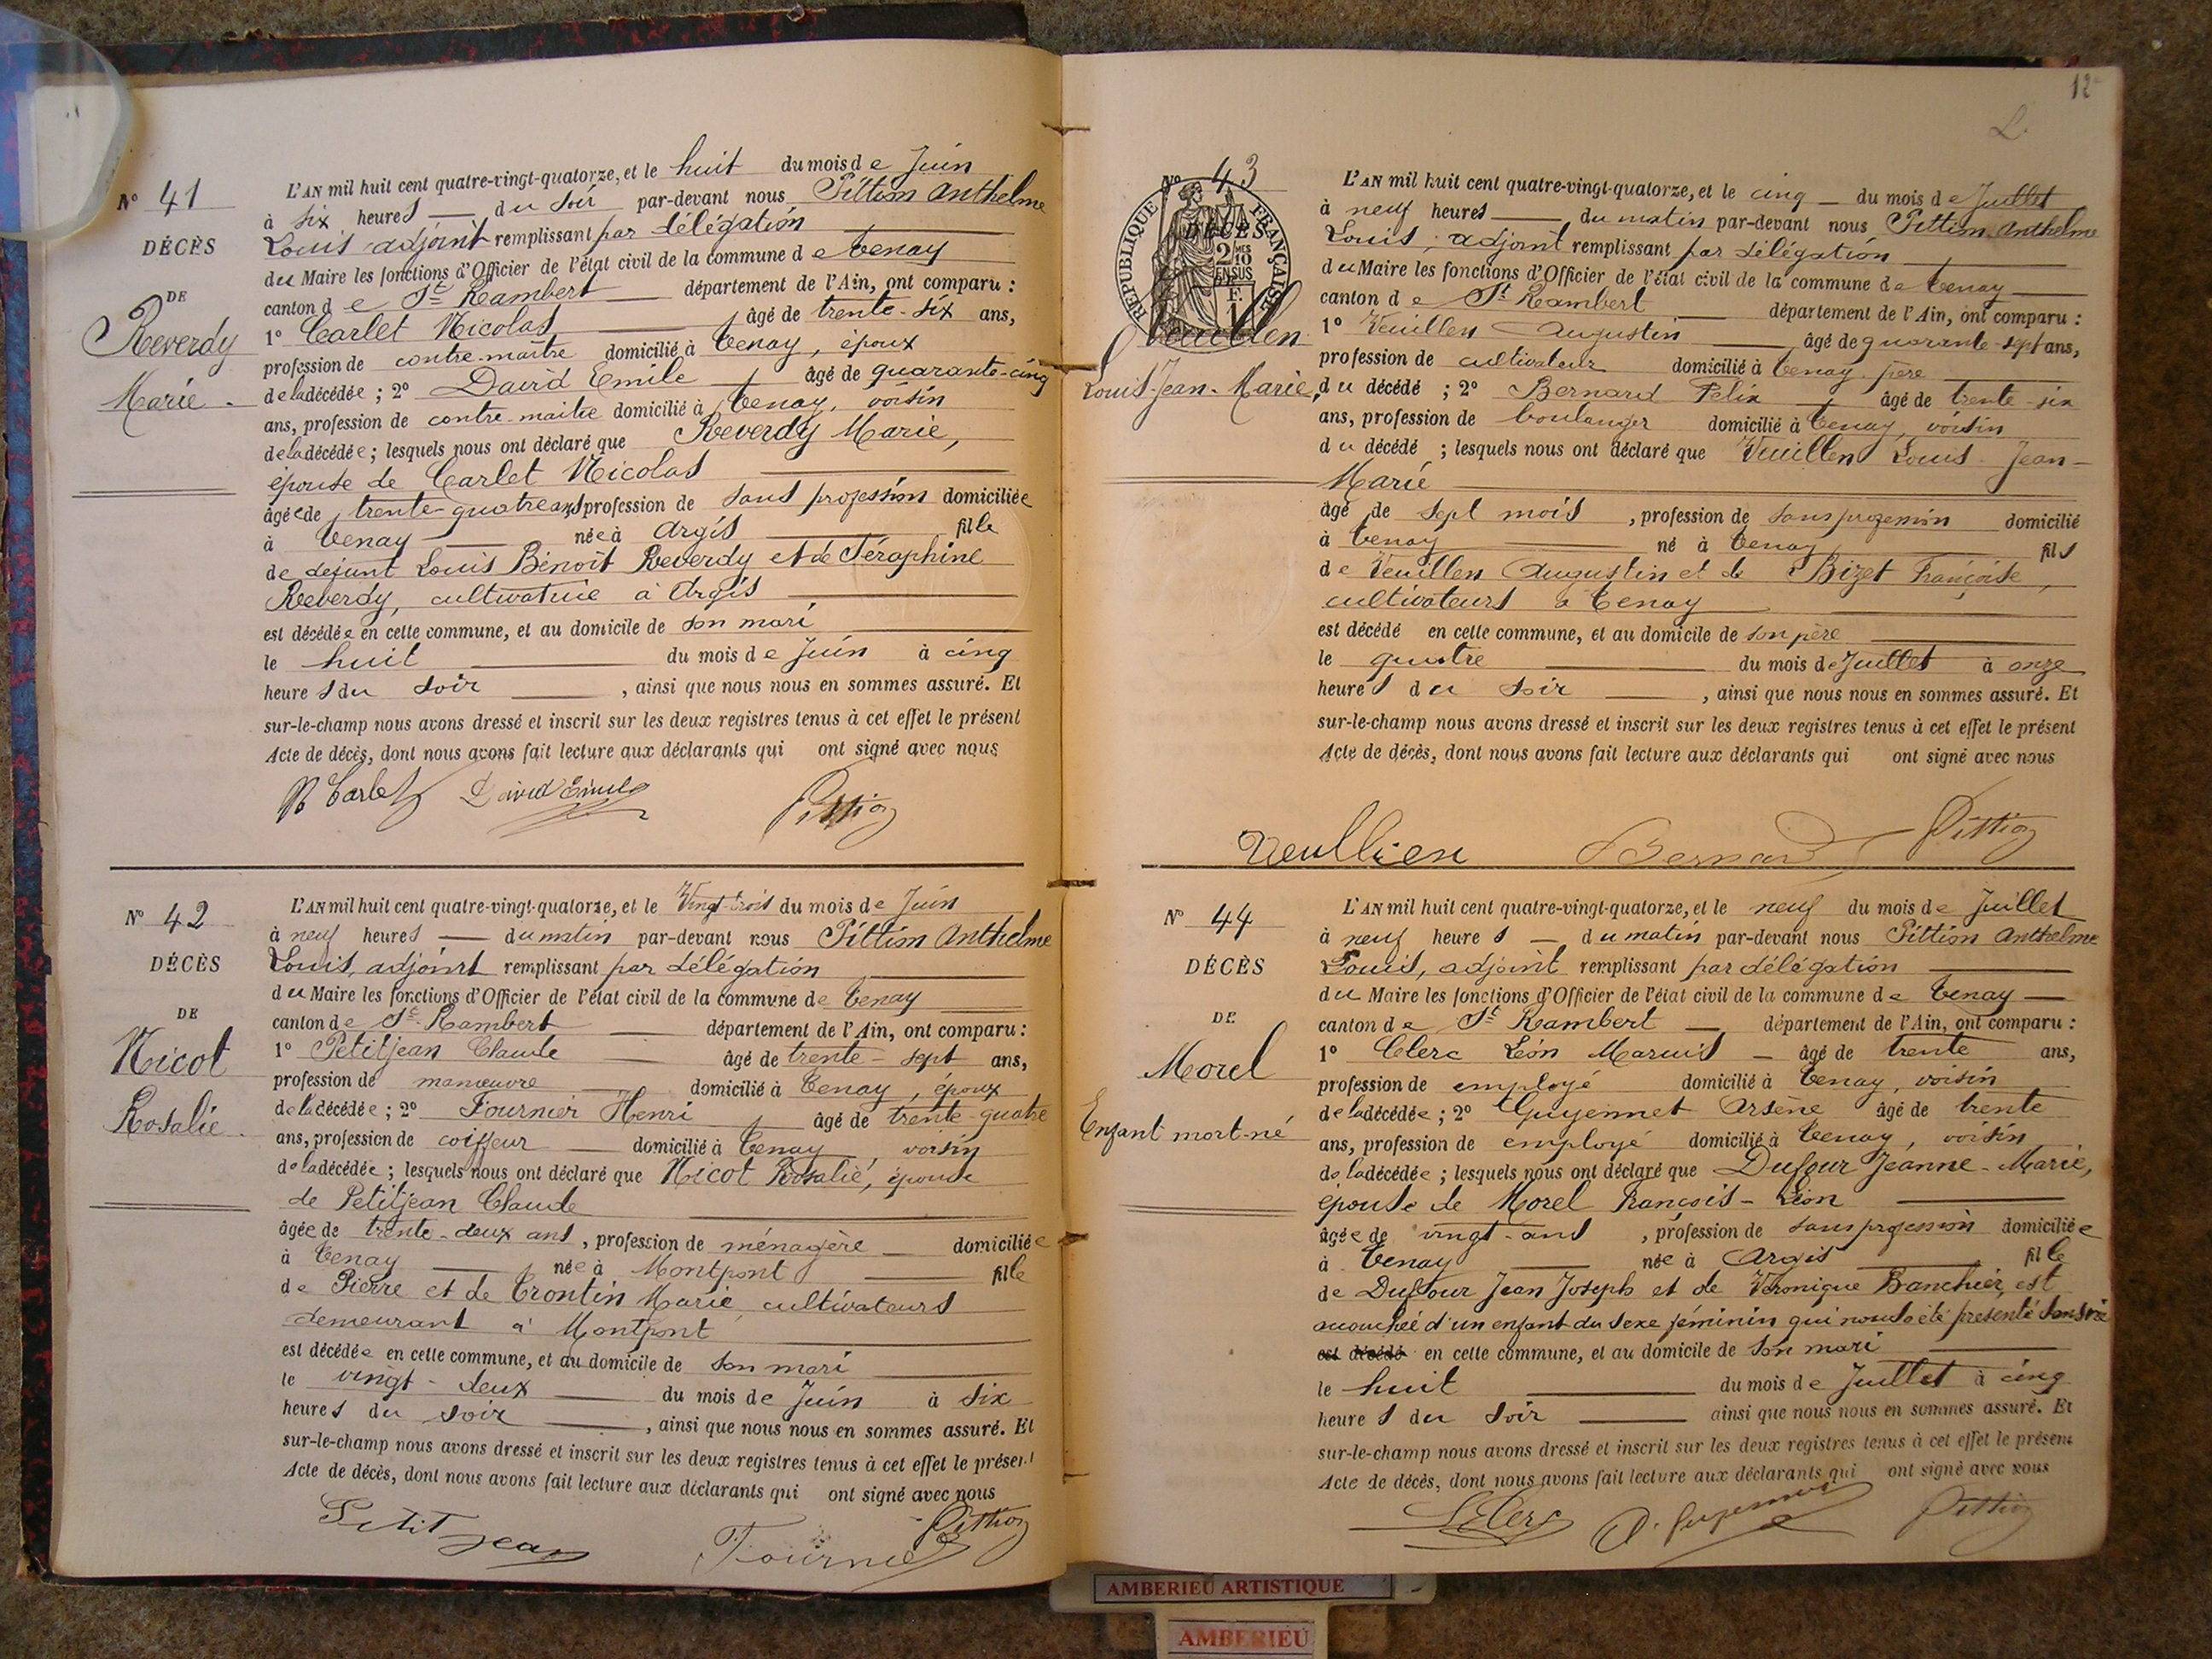 N° 41
DÉCÈS
DE
Reverdy
Marie.
L'AN mil huit cent quatre-vingt-quatorze, et le huit du mois de Juin
à six heures du soir par-devant nous Pittion Anthelme
Louis adjoint remplissant par délégation
du Maire les fonctions d'Officier de l'état civil de la commune de Tenay
canton de St Rambert département de l'Ain, ont comparu :
1° Carlet Nicolas âgé de trente-six ans,
profession de contre-maître domicilié à Tenay, époux
de la décédée ; 2° David Emile âgé de quarante-cinq
ans, profession de contre-maitre domicilié à Tenay, voisin
de la décédée ; lesquels nous ont déclaré que Reverdy Marie,
épouse de Carlet Nicolas
âgée de trente-quatre ans profession de sans profession domiciliée
à Tenay née à Argis fille
de défunt Louis Benoit Reverdy et de Séraphine
Reverdy, cultivatrice à Argis
est décédée en cette commune, et au domicile de son mari
le huit du mois de Juin à cinq
heures du soir , ainsi que nous nous en sommes assuré. Et
sur-le-champ nous avons dressé et inscrit sur les deux registres tenus à cet effet le présent
Acte de décès, dont nous avons fait lecture aux déclarants qui ont signé avec nous
N Carlet David Emile Pittion
N° 42
DÉCÈS
DE
Nicot
Rosalie.
L'AN mil huit cent quatre-vingt-quatorze, et le Vingt-trois du mois de Juin
à neuf heures du matin par-devant nous Pittion Anthelme
Louis, adjoint remplissant par délégation
du Maire les fonctions d'Officier de l'état civil de la commune de Tenay
canton de St Rambert département de l'Ain, ont comparu :
1° Petitjean Claude âgé de trente-sept ans,
profession de manœuvre domicilié à Tenay, époux
de la décédée ; 2° Fournier Henri âgé de trente-quatre
ans, profession de coiffeur domicilié à Tenay, voisin
de la décédée ; lesquels nous ont déclaré que Nicot Rosalie, épouse
de Petitjean Claude
âgée de trente-deux ans , profession de ménagère domiciliée
à Tenay née à Montpont fille
de Pierre et de Trontin Marie cultivateurs
demeurant à Montpont
est décédée en cette commune, et au domicile de son mari
le vingt-deux du mois de Juin à six
heures du soir , ainsi que nous nous en sommes assuré. Et
sur-le-champ nous avons dressé et inscrit sur les deux registres tenus à cet effet le présent
Acte de décès, dont nous avons fait lecture aux déclarants qui ont signé avec nous
Petitjean Fournier Pittion
12
N° 43
RÉPUBLIQUE FRANÇAISE
DÉCÈS
2/10 MES
EN SUS
F.
1
Louis-Jean-Marie,
L'AN mil huit cent quatre-vingt-quatorze, et le cinq du mois de Juillet
à neuf heures du matin par-devant nous Pittion Anthelme
Louis, adjoint remplissant par délégation
du Maire les fonctions d'Officier de l'état civil de la commune de Tenay
canton de St Rambert département de l'Ain, ont comparu :
1° Veuillen Augustin âgé de quarante-sept ans,
profession de cultivateur domicilié à Tenay père
du décédé ; 2° Bernard Félix âgé de trente-six
ans, profession de boulanger domicilié à Tenay, voisin
du décédé ; lesquels nous ont déclaré que Veuillen Louis Jean-
Marie
âgé de sept mois , profession de sans profession domicilié
à Tenay né à Tenay fils
de Veuillen Augustin et de Bizet Françoise,
cultivateurs à Tenay
est décédé en cette commune, et au domicile de son père
le quatre du mois de Juillet à onze
heures du soir , ainsi que nous nous en sommes assuré. Et
sur-le-champ nous avons dressé et inscrit sur les deux registres tenus à cet effet le présent
Acte de décès, dont nous avons fait lecture aux déclarants qui ont signé avec nous
Veullien Bernard Pittion
N° 44
DÉCÈS
DE
Morel
Enfant mort-né
L'AN mil huit cent quatre-vingt-quatorze, et le neuf du mois de Juillet
à neuf heures du matin par-devant nous Pittion Anthelme
Louis, adjoint remplissant par délégation
du Maire les fonctions d'Officier de l'état civil de la commune de Tenay
canton de St Rambert département de l'Ain, ont comparu :
1° Clerc Léon Marius âgé de trente ans,
profession de employé domicilié à Tenay, voisin
de la décédée ; 2° Guyennet Arsène âgé de trente
ans, profession de employé domicilié à Tenay, voisin
de la décédée ; lesquels nous ont déclaré que Dufour Jeanne-Marie,
épouse de Morel François-Léon
âgée de vingt-ans , profession de sans profession domiciliée
à Tenay née à Argis fille
de Dufour Jean Joseph et de Véronique Banchier, est
accouchée d'un enfant du sexe féminin qui nous a été présenté sans vie
est décédé en cette commune, et au domicile de son mari
le huit du mois de Juillet à cinq
heures du soir ainsi que nous nous en sommes assuré. Et
sur-le-champ nous avons dressé et inscrit sur les deux registres tenus à cet effet le présent
Acte de décès, dont nous avons fait lecture aux déclarants qui ont signé avec nous
L Clerc A. Guyennet Pittion
AMBERIEU ARTISTIQUE
AMBERIEU